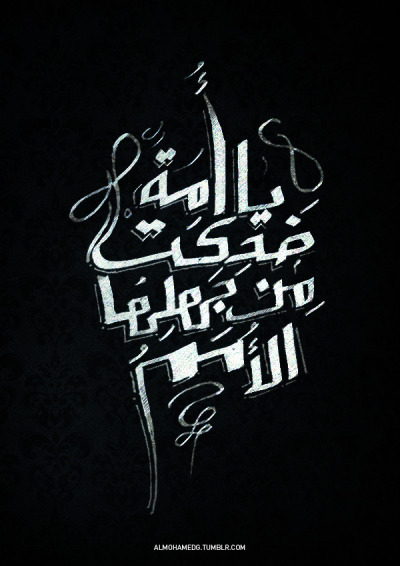 يا أُمة
ضَحِكَت
مِن جَهلِها
الأُممُ
ALMOHAMEDG.TUMBLR.COM